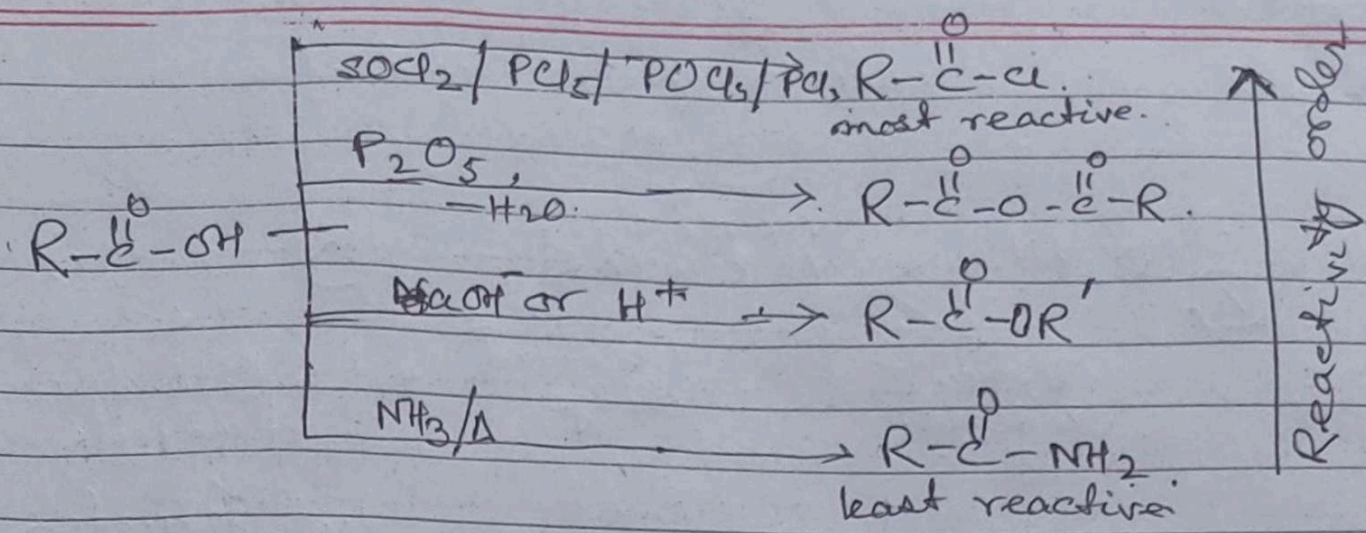 SOCl2 / PCl5 / POCl3 / PCl3 R-C(=O)-Cl.
most reactive.
P2O5, -H2O. R-C(=O)-O-C(=O)-R.
R-C(=O)-OH
OH⁻ or H+ → R-C(=O)-OR'
NH3/Δ → R-C(=O)-NH2
least reactive
Reactivity order